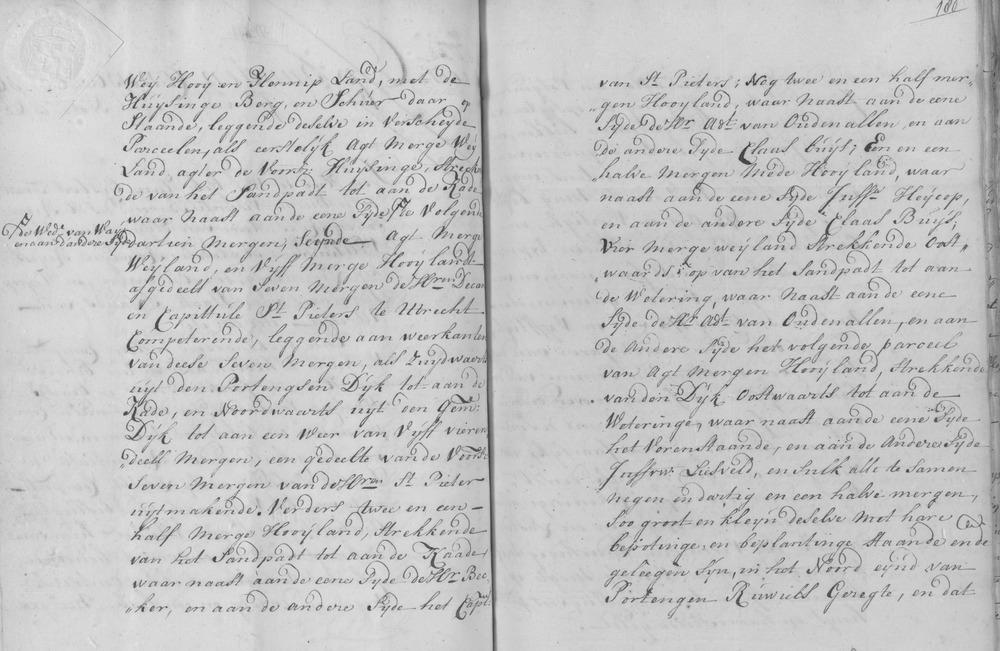 180
Weij Hooij en Hennip Land, met de
Huijsinge Berg, en Schuer daar op
Staande, leggende deselve in Verscheijde
Parceelen, als eerstelijk Agt Merge Weij
Land, agter de Voorsz: Huijsinge, Strecken
de van het Sandpadt tot aan de Kade
waar naast aan de eene Sijde 't Volgende
de Wede van Waij
en aan d andere Sijde
dartien Mergen, Sijnde Agt Merge
Weijland, en Vijff Merge Hooijlandt
afgedeelt van Seven Mergen de Hren Decan
en Capittule St Pieters te Utrecht
Competerende, leggende aan weerkanten
van deese Seven Mergen, als Zuijdwaerts
uijt den Portengsen Dijk tot aan de
Kade, en Noordwaarts uijt den gem:
Dijk tot aan een Weer van Vijff vieren
deell Mergen, een gedeelte van de Voorsz:
Seven Mergen van de Hren St Pieter
uijtmakende Verders twee en een
half Merge Hooijland, strekkende
van het Sandpadt tot aan de Kaade,
waar naast aan de eene Sijde de Hr Bec
ker, en aan de andere Sijde het Capitt:
van St Pieters; Nog twee en een half mer,
gen Hooijland, waar naast aan de eene
Sijde de Hr Adt van Oudenallen, en aan
de andere Sijde Claas Buijs; Een en een
halve Mergen Mede Hooijland, waar
naast aan de eene Sijde Juffr Heijcop,
en aan de andere Sijde Claas Buijs,
Vier Merge weijland Strekkende Oost,
waards op van het Sandpadt tot aan
de Wetering, waar naast aan de eene
Sijde de Hr Adt van Oudenallen, en aan
de Andere Sijde het volgende parceel
van Agt Mergen Hooijland, Strekkende
van den Dijk Oostwaarts tot aan de
Weteringe, waar naast aan de eene Sijde
het Vorenstaande, en aan de Andere Sijde
Juffrw: Liesveld, en Sulk alle te Samen
negen en dartig en een halve mergen,
Soo groot en kleijn deselve met hare
bepotinge, en beplantinge Staande ende
geleegen Sijn, in het Noord eijnd van
Portengen Ruwiels Geregte, en dat